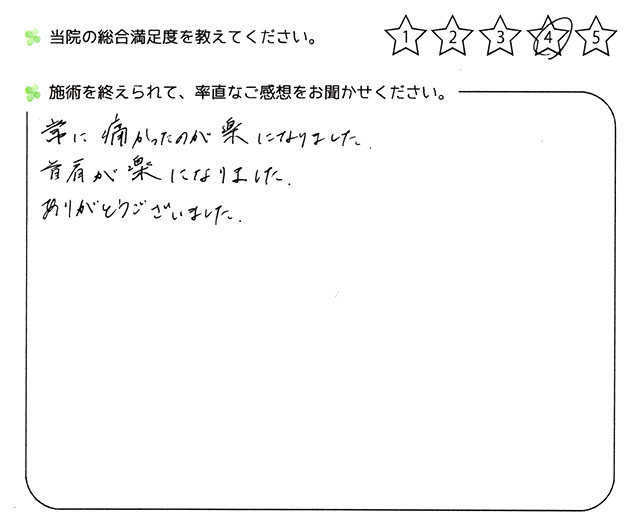 当院の総合満足度を教えてください。 1 2 3 4 5
施術を終えられて、率直なご感想をお聞かせください。
常に痛かったのが楽になりました.
首肩が楽になりました.
ありがとうございました.